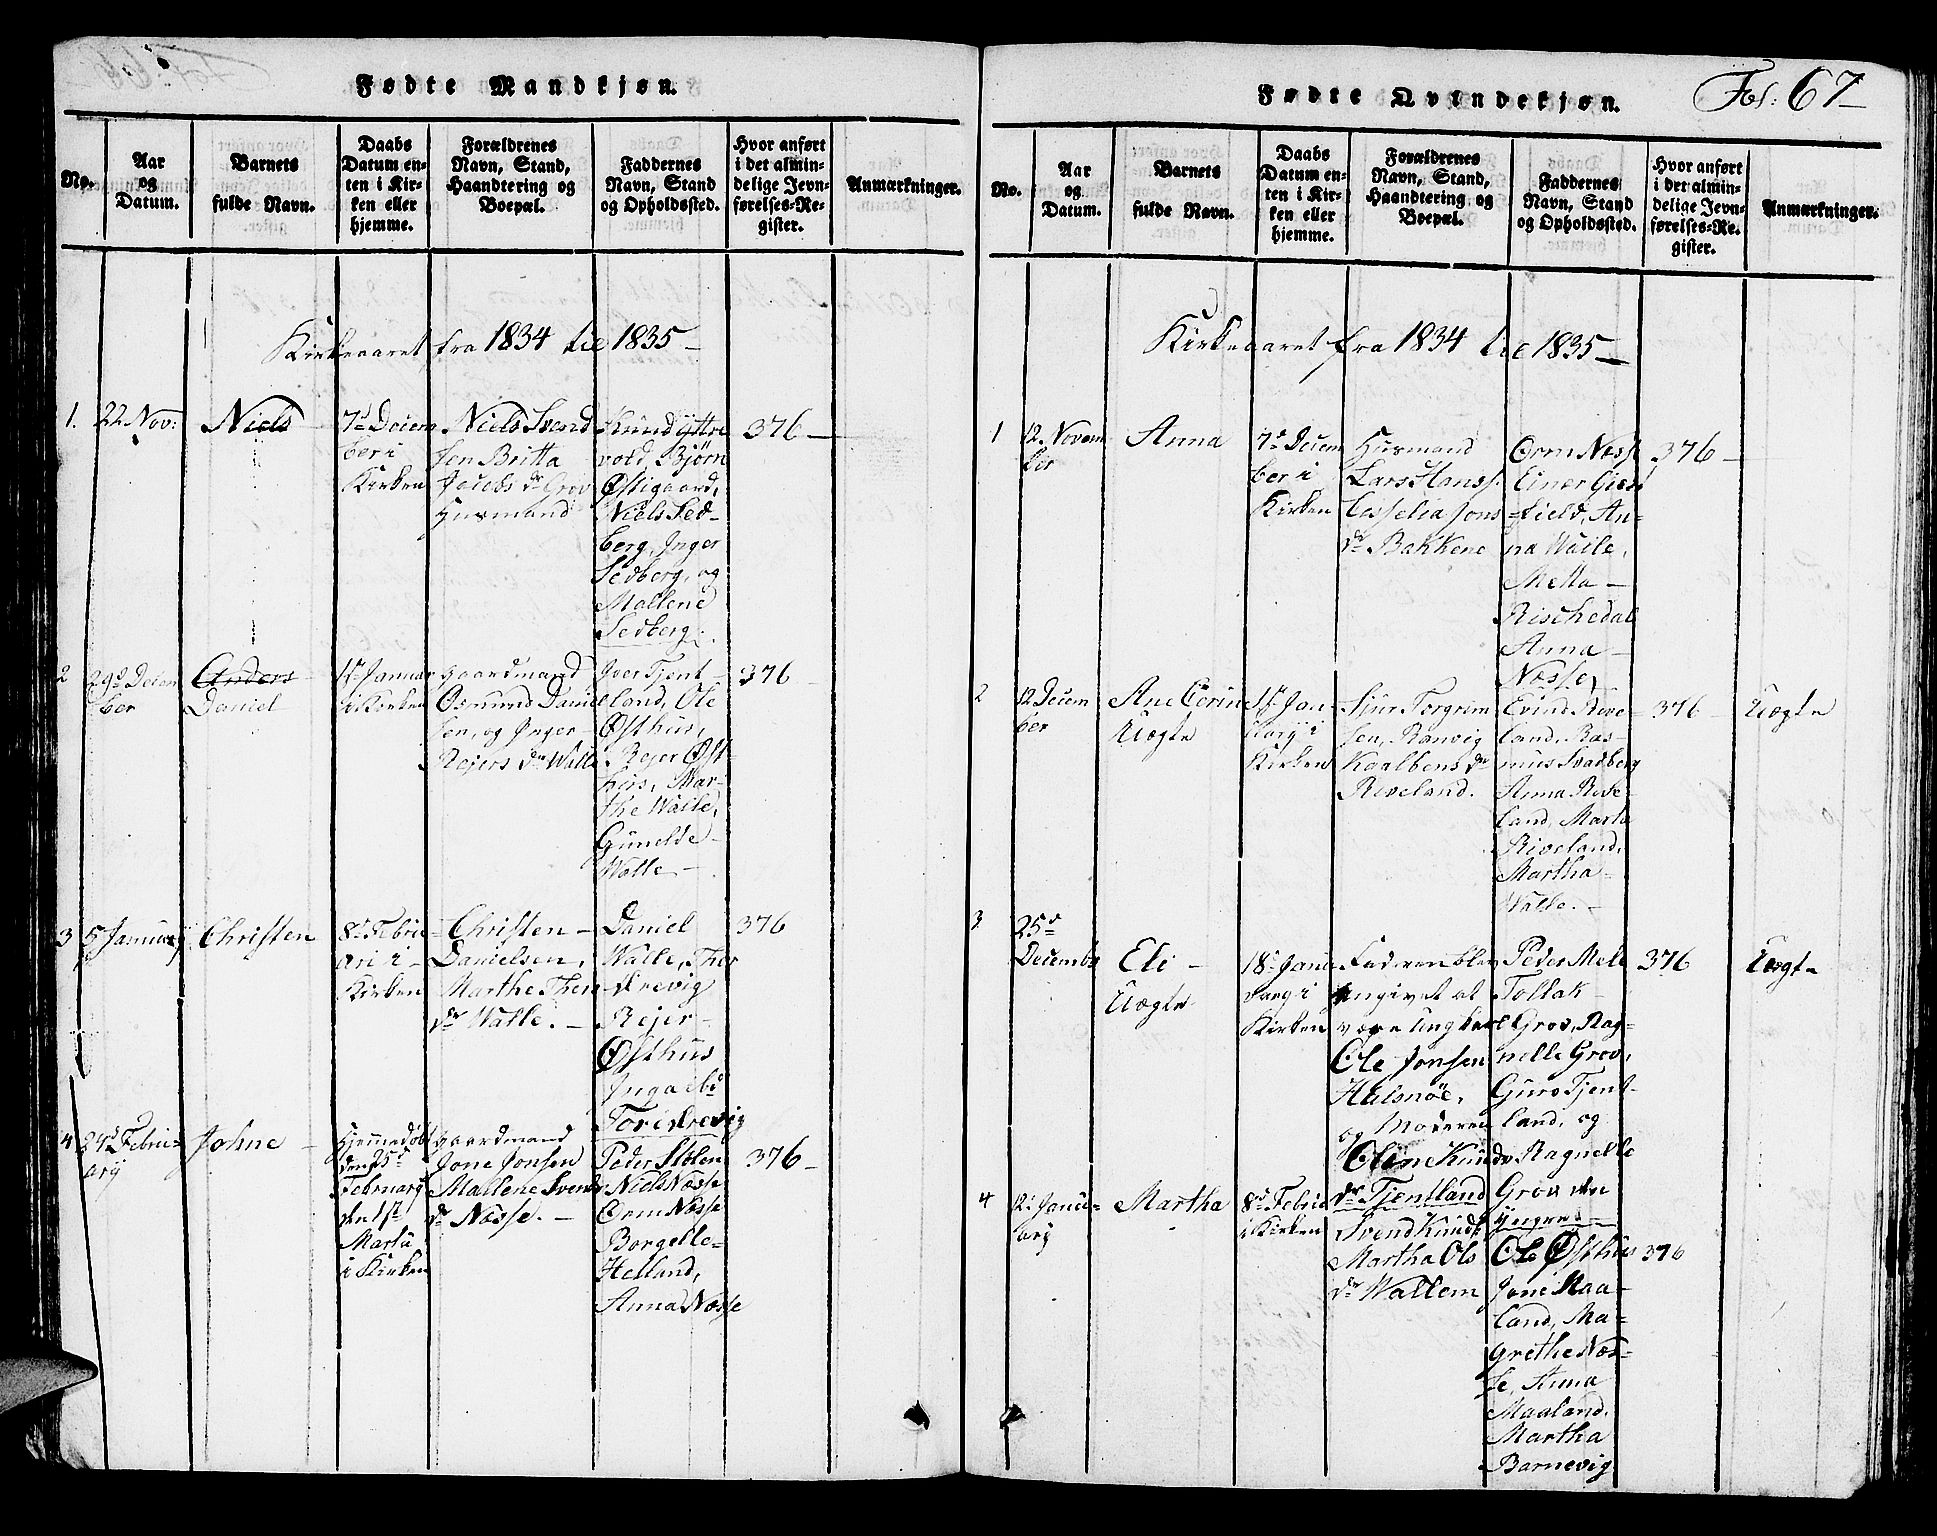 Fødte Mandkjøn.
No.
Aar
og
Datum.
Barnets
fulde Navn.
Daabs
Datum en-
ten i Kir-
ken eller
hjemme.
Forældrenes
Navn, Stand,
Haandtering og
Boepæl.
Faddernes
Navn, Stand
og Opholdssted.
Hvor anført
i det almin-
delige Jevn-
førelses-Re-
gister.
Anmærkninger.
Kirkeaaret fra 1834 til 1835 -
1.
22 Nov:
Niels
7d Decem
ber i
Kirken
Niels Svend
sen Britta
Jacobs dr Grov
Huusmand
Knud Yttre
vold, Bjørn
Østigaard,
Niels Sed-
berg, Inger
Sedberg, og
Mallene
Sedberg.
376 -
2
29d Decem
ber
Anders
Daniel
1st Januar
i Kirken
gaardmand
Osmund Daniel
sen, og Inger
Rejers dr Walle
Iver Tjent-
land, Ole
Østhus,
Rejer Øst-
hus, Mar-
the Walle,
Gunelde
Walle -
376
3
5 Januarij
Christen
8d Febru-
ari i
Kirken
Christen -
Danielsen,
Marthe Thers
dr Walle. -
Daniel
Walle, Thor
drevig
Rejer
Østhus
Tori drevig
376
4
24d Febru-
arij
Johne -
Hjemmedøbt
den 25d
Februarij
den 1st
Martii
i Kirken
gaardmand
Jone Jonsen
Mallene Svends
dr Næsse. -
Peder Stølen
Niels Næsse
Orm Næsse
Borgelle
Helland,
Anna Næsse
376 -
Fødte Qvindekjøn.
Fol: 67
No.
Aar
og
Datum.
Barnets
fulde Navn.
Daabs
Datum en-
ten i Kir-
ken eller
hjemme.
Forældrenes
Navn, Stand,
Haandtering og
Boepæl.
Faddernes
Navn, Stand
og Opholdssted.
Hvor anført
i det almin-
delige Jevn-
førelses-Re-
gister.
Anmærkninger.
Kirkeaaret fra 1834 til 1835 -
1
12 Novem
ber
Anna
7d Decem
ber i
Kirken
Huusmand
Lars Hanss.
Cisselia Jons
dr Bakkene
Orm Næss
Einer Gierd
field, An=
na Walle,
Metta -
Rischedal
Anna -
Næsse,
376 -
2
12 Decem
ber
Ane Cerin
Uægte
1st Jan-
uarij i
Kirken
Siur Torgrim
sen, Ranvig
Kaalbens dr
Riveland.
Evind Rive-
land, Ras-
mus Svadberg
Anna Rive-
land, Marta
Riveland,
Martha
Walle. -
376 -
Uægte
3
25d
Decembr
Eli -
Uægte
18d Janu-
arij i
Kirken
Faderen blev
angivet at
være Ungkarl
Ole Jonsen
Halsnøe,
og Moderen
Oline Knuds
dr Tjentland
Peder Mele
Tollak
Grov, Rag-
nelle Grov,
Guro Tjent-
land, og
Ragnelle
Grov den
yngre
376
Uægte
4
12d Janu-
arij
Martha
8d Februa
i Kirken
Svend Knuds
Martha Ols
dr Wallem
Ole Østhus
Jone Maa-
land, Ma-
grethe Næs-
se, Anna
Maaland.
Martha
Barnevig
376